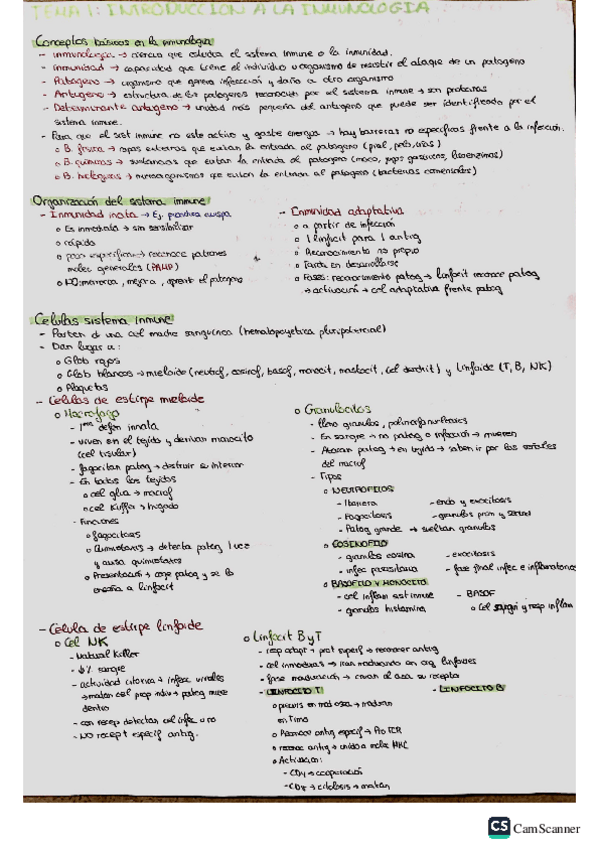 TEMA 1: INTRODUCCION A LA INMUNOLOGIA
Conceptos básicos en la inmunologia
- inmunologia → ciencia que estudia el sistema inmune o la inmunidad.
- inmunidad → capacidad que tiene el individuo u organismo de resistir el ataque de un patogeno
- Patogeno → organismo que genera infección y daño a otro organismo
- Antigeno → estructura de los patogenos reconocida por el sistema inmune → son proteinas
- Determinante antigeno → unidad más pequeña del antigeno que puede ser identificado por el
sistema inmune.
- Para que el sist inmune no este activo y gaste energia → hay barreras no especificas frente a la infección.
o B. fisica → capas externas que evitan la entrada al patogeno (piel, pelo, uñas)
o B. quimicas → sustancias que evitan la entrada al patogeno (moco, jugos gastricos, lisozimas)
o B. biológicas → microorganismos que evitan la entrada al patogeno (bacterias comensales)
Organización del sistema inmune
- Inmunidad inata → Ej. pincha
o Es inmediata → sin sensibilizar
o rápida
o poco especifica → reconoce patrones
molec generales (PAMP)
o NO: memoria, mejora, aprent el patogeno
- Inmunidad adaptativa
o a partir de infección
o 1 linfocit para 1 antig
o Reconocimiento no propio
o Tarda en desarrollarse
o Fases: reconocimiento patog → linfocit reconoce patog
→ activación → cel adaptativa frente patog
Células sistema inmune
- Parten de una cel madre sanguinea (hematopoyetica pluripotencial)
- Dan lugar a:
o Glob rojos
o Glob blancos → mieloide (neutrof, eosinof, basof, monocit, mastocit, cel dendrit) y linfoide (T, B, NK)
o Plaquetas
- Celulas de estirpe mieloide
o Macrofago
- 1era defen innata
- viven en el tejido y derivan monocito
(cel tisular)
- fagocitan patog → destruir su interior
- En todos los tejidos
o cel glia → macrof
o cel Kuffer → higado
- Funciones
o fagocitosis
o Quimiotaxis → detecta patog 1 vez
y avisa quimiocitas
o Presentación → coge patog y se lo
enseña a linfocit
o Granulocitos
- lleno granulos, polimorfonucleares
- En sangre → no patog o infección → mueren
- Atacan patog → en tejido → saben ir por las señales
del macrof
- Tipos
o NEUTROFILOS
- 1 barrera
- endo y exocitosis
- Fagocitosis
- granulos prim y secund
- Patog grande → sueltan granulos
o EOSINOFILO
- granulos eosina
- exocitosis
- infec parasitaria
- fase final infec e inflamatorias
o BASOFILO Y MONOCITO
- cel inflam sist inmune
- BASOF
- granulos histamina
o Cel sangui y resp inflam
- Célula de estirpe linfoide
o Cel NK
- Natural Killer
- % sangre
- actividad citotoxica → infecc virales
→ matan cel prop indiv → patog muere
dentro
- con recep detectan cel infec o no
- NO recept especif antig.
o Linfocit B y T
- resp adapt → prot superf → reconocer antig
- cel inmaduras → iran madurando en org linfoides
- fase maduración → crean al azar su receptor
- LINFOCITO T
- LINFOCITO B
o precurs en med osea → maduran
en Timo
o Reconoce antig especif → Pto TCR
o reconoc antig → unido a molec MHC
o Activacion:
- CD4 → cooperación
- CD8 → citolosis → matan
CS CamScanner